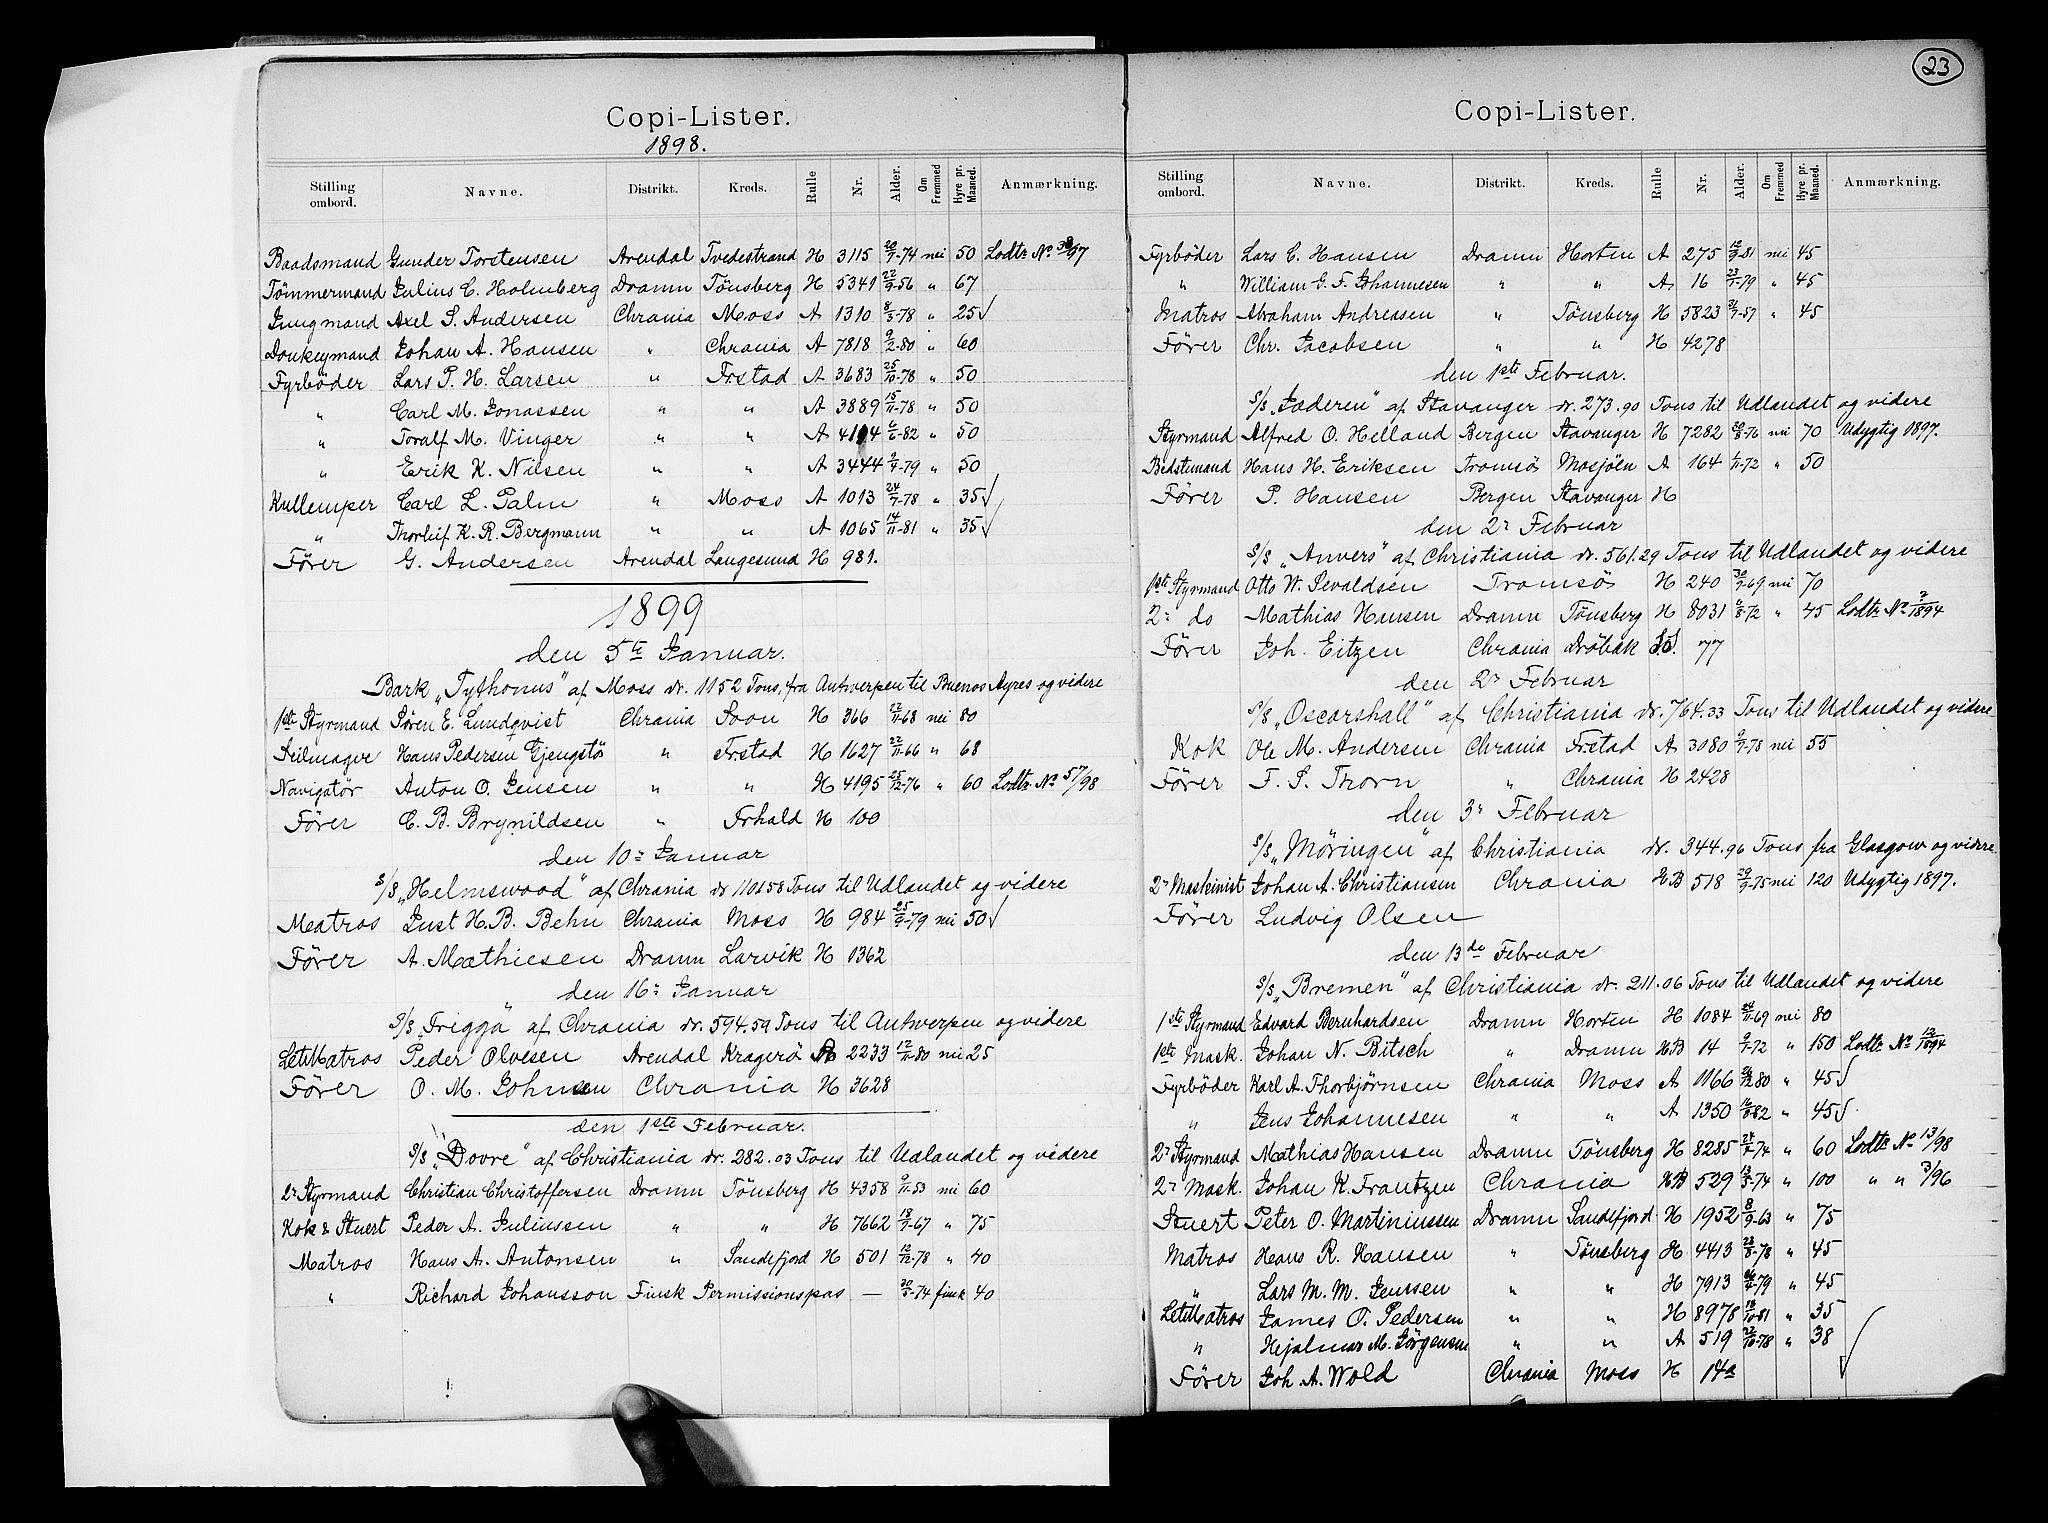 Copi-Lister.
1898.
Stilling ombord. Navne. Distrikt. Kreds. Rulle Nr. Alder. Om Fremmed Hyre pr. Maaned. Anmærkning.
Baadsmand Gunder Torstensen Arendal Tvedestrand H 3115 20/7-74 nei 50 Lodtr. No. 38/97
Tömmermand Julius C. Holmberg Dramn Tönsberg H 5341 22/9-56 " 67
Jungmand Axel S. Andersen Chrania Moss A 1310 8/3-78 " 25 √
Donkeymand Johan A. Hansen " Chrania A 7818 9/2-80 " 60
Fyrböder Lars P. H. Larsen " Frstad A 3683 25/10-78 " 50
" Carl M. Jonassen " " A 3889 15/11-78 " 50
" Toralf M. Vinger " " A 4194 6/6-82 " 50
" Erik K. Nilsen " " A 3444 9/4-79 " 50
Kullemper Carl L. Palm " Moss A 1013 24/7-78 " 35 √
" Thorleif K. R. Bergmann " " A 1065 14/11-81 " 35 √
Förer G. Andersen Arendal Langesund H 981.
1899
den 5te Januar.
Bark "Tythonus" af Moss dr. 1152 Tons, fra Antwerpen til Buenos Ayres og videre
1ste Styrmand Sören E. Lundqvist Chrania Soon H 366 12/11-68 nei 80
Seilmager Hans Pedersen Gjengstö " Frstad H 1627 22/11-66 " 68
Navigatör Anton O. Jensen " " H 4195 25/12-76 " 60 Lodtr. No 57/98
Förer C. B. Brynildsen " Frhald H 100
den 10: Januar
S/S "Helmswood" af Chrania dr 1101 58 Tons til Udlandet og videre
Matros Just H. B. Behn Chrania Moss H 984 25/9-79 nei 50 √
Förer A. Mathiesen Dramn Larvik H 1362
den 16: Januar
S/S "Frigga" af Chrania dr. 594.59 Tons til Antwerpen og videre
LetMatros Peder Olvesen Arendal Kragerö A 2233 12/11-80 nei 25
Förer O. M. Johnsen Chrania H 3628
den 1ste Februar.
S/S "Dovre" af Christiania dr. 282.03 Tons til Udlandet og videre
2: Styrmand Christian Christoffersen Dramn Tönsberg H 4358 9/11-53 nei 60
Kok & Stuert Peder A. Juliussen " " H 7662 18/7-67 " 75
Matros Hans A. Antonsen " Sandefjord H 501 12/12-78 " 40
" Richard Johansson Finsk Permissionspas — 20/5-74 finsk 40
23
Copi-Lister.
Stilling ombord. Navne. Distrikt. Kreds. Rulle Nr. Alder. Om Fremmed Hyre pr. Maaned. Anmærkning.
Fyrböder Lars C. Hansen Dramn Horten A 275 10/9-81 nei 45
" William G. F. Johannesen " " A 16 23/1-79 " 45
Matros Abraham Andreasen " Tönsberg H 5823 31/7-57 " 45
Förer Chr. Jacobsen " " H 4278
den 1ste Februar.
S/S "Jæderen" af Stavanger dr. 273.90 Tons til Udlandet og videre
Styrmand Alfred O. Helland Bergen Stavanger H 7282 20/8-76 nei 70 Udygtig 1897.
Bedstemand Hans H. Eriksen Tromsö Mosjöen A 164 1/11-72 " 50
Förer P. Hansen Bergen Stavanger H
den 2: Februar
S/S "Anvers" af Christiania dr. 561.29 Tons til Udlandet og videre
1ste Styrmand Otto W. Sevaldsen Tromsö H 240 30/9-69 nei 70
2: do Mathias Hansen Dramn Tönsberg H 8031 6/8-72 " 45 Lodtr. No 7/1894
Förer Joh. Eitzen Chrania Dröbak S.S. 77
den 2: Februar
S/S "Oscarshall" af Christiania dr. 764.33 Tons til Udlandet og videre
Kok Ole M. Andersen Chrania Frstad A 3080 9/7-78 nei 55
Förer F. S. Thorn " Chrania H 2428
den 3: Februar
S/S "Möringen" af Christiania dr. 344.96 Tons fra Glasgow og videre
2: Maskinist Johan A. Christiansen Chrania HB 518 29/9-75 nei 120 Udygtig 1897.
Förer Ludvig Olsen
den 13de Februar
S/S "Bremen" af Christiania dr. 211.06 Tons til Udlandet og videre
1ste Styrmand Edvard Bernhardsen Dramn Horten H 1084 24/11-69 nei 80
1ste Mask. Johan N. Bitsch " Dramn HB 14 9/1-72 " 150 Lodtr. No 12/1894
Fyrböder Karl A. Thorbjörnsen Chrania Moss A 1166 26/12-80 " 45 √
" Jens Johannesen " " A 1350 16/8-82 " 45 √
2: Styrmand Mathias Hansen Dramn Tönsberg H 8285 24/7-74 " 60 Lodtr. No 13/98
2: Mask. Johan K. Frantzen Chrania HB 529 13/5-74 " 100 " " 3/96
Stuert Peter O. Martiniussen Dramn Sandefjord H 1952 8/9-63 " 75
Matros Hans R. Hansen " Tönsberg H 4413 28/8-78 " 45
" Lars M. M. Jenssen " " H 7913 -79 " 45
LetMatros James O. Pedersen " " H 8978 18/10-81 " 35
" Hejalmar M. Jörgensen " " A 519 22/10-78 " 38
Förer Joh A. Wold Chrania Moss H 14a